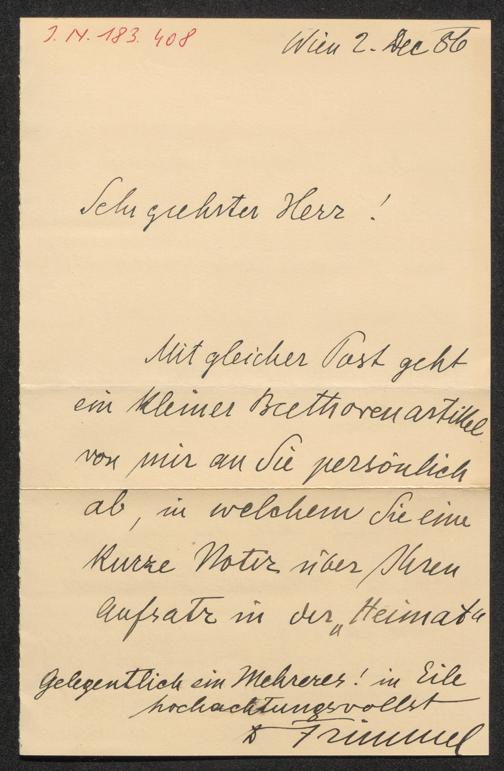 J.N. 183.408
Wien 2. Dec 86
Sehr geehrter Herr!
Mit gleicher Post geht
ein kleiner Beethovenartikel
von mir an Sie persönlich
ab, in welchem Sie eine
kurze Notiz über Ihren
Aufsatz in der „Heimat“
Gelegentlich ein Mehreres! in Eile
hochachtungsvollst
Dr Frimmel